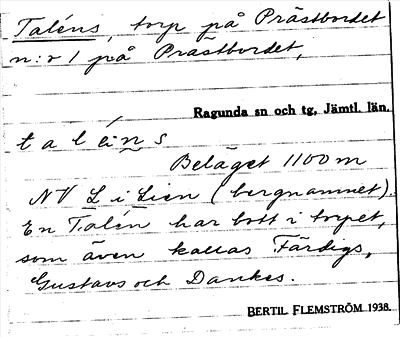 Taléns, torp på Prästbordet
n:r 1 på Prästbordet,
Ragunda sn och tg, Jämtl. län.
t a l é n s
Beläget 1100 m
NV L i Lien (bergnamnet).
En Talén har bott i torpet,
som även kallas Färdigs,
Gustavs och Dankes.
BERTIL FLEMSTRÖM 1938.